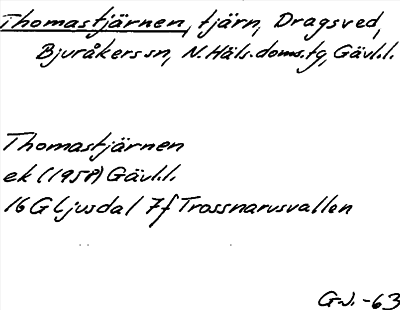 Thomastjärnen, tjärn, Dragsved,
Bjuråkers sn, N. Häls. doms.tg, Gävl.l.
Thomastjärnen
ek (1958) Gävl.l.
16G Ljusdal 7f Trossnarvsvallen
G.J. -63